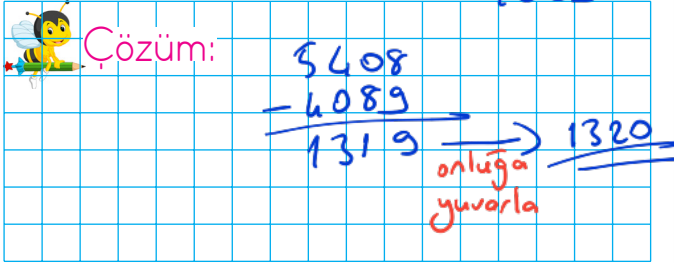 Çözüm:
5408
- 4089
1319 → 1320
onluğa
yuvarla